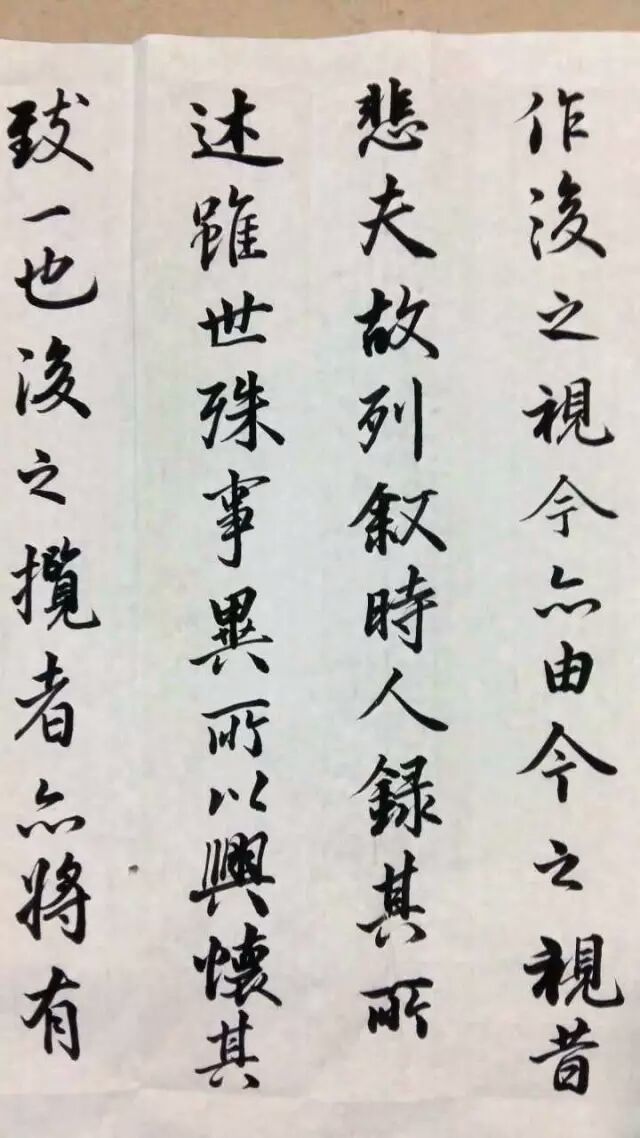 作後之視今亦由今之視昔
悲夫故列叙時人録其所
述雖世殊事異所以興懷其
致一也後之攬者亦將有